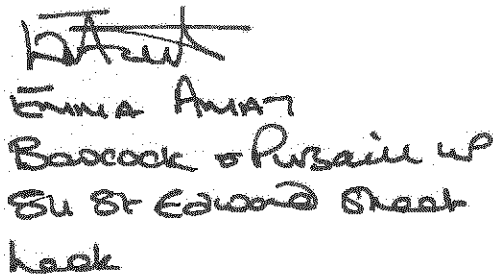 Emma Amat
Babcock & Pursaill LLP
54 St Edward Street
Leek